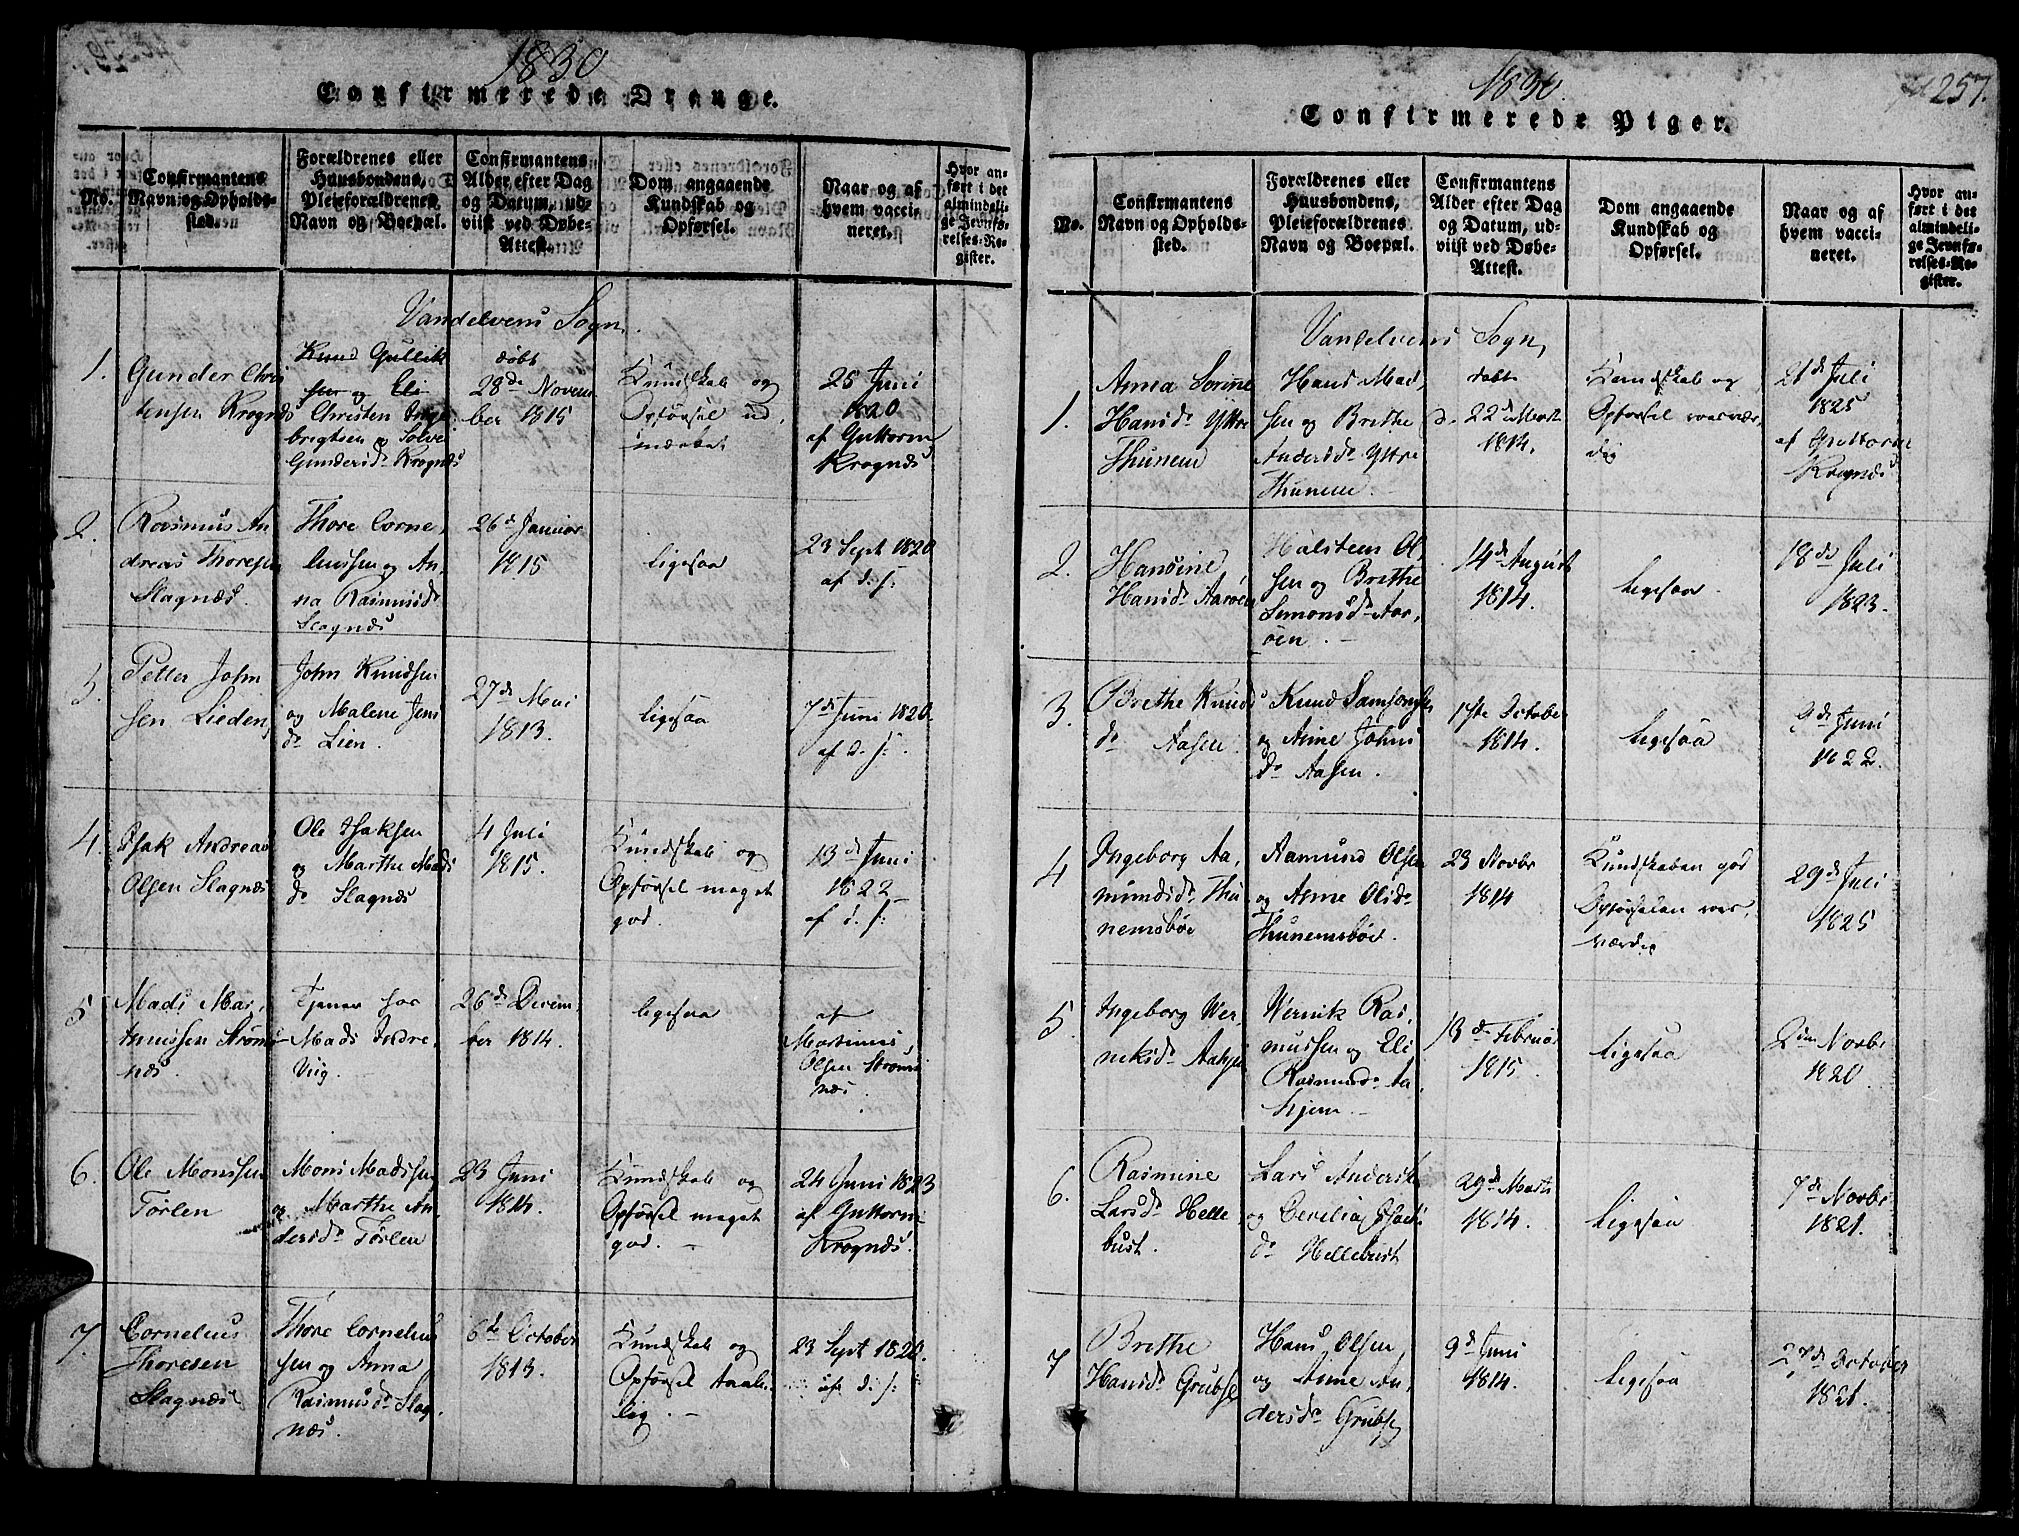 1830
Confirmerede Drenge.
No.
Confirmantens
Navn og Opholds-
sted.
Forældrenes eller
Huusbondens,
Pleieforældrenes
Navn og Boepæl.
Confirmantens
Alder efter Dag
og Datum, ud-
viist ved Døbe-
Attest.
Dom angaaende
Kundskab og
Opførsel.
Naar og af
hvem vacci-
neret.
Hvor an-
ført i det
almindeli-
ge Jevnfø-
relses-Re-
gister.
Vandelvens Sogn.
1.
Gunder Chri
stensen Krognæs
Knud Gullik
sen og Eli
Christen Inge
brigtsen og Solvei
Gundersdr Krognæs
døbt
28de Novem
ber 1815
Kundskab og
Opførsel ud
mærket
25 Juni
1820
af Guttorm
Krognæs
2.
Rasmus An
dreas Thoresen
Slagnæs.
Thore Corne,
liussen og An,
na Rasmusdr
Slagnæs
26de Januar
1815
ligesaa
23 Sept 1820
af d. s:
3.
Petter John
sen Lieden,
John Knudsen
og Malene Jens
dr Lien.
27de Mai
1813.
ligesaa
7de Juni 1820.
af d. s:
4.
Isak Andreas
Olsen Slagnæs
Ole Isaksen
og Marthe Mads
dr Slagnæs
4 Juli
1815.
Kundskab og
Opførsel meget
god.
13de Juni
1822
af d. s:
5
Mads Mar,
thinussen Strøms
næs.
Tjener hos
Mads Indre
Viig.
26de Decem,
ber 1814.
ligesaa
af
Martinus
Olsen Strøms
næs.
6.
Ole Monssen
Tørlen
Mons Madssen
og Marthe An
dersdr Tørlen
23 Juni
1814.
Kundskab og
Opførsel meget
god.
24 Juni 1823
af Guttorm
Krognæs.
7.
Cornelius
Thoresen
Slagnæs
Thore Cornelius
sen og Anna
Rasmusdr Slag
næs.
6de October
1813.
Kundskab og
Opførsel taale
lig.
23 Sept 1820.
af d. s:
1830.
257.
Confirmerede Piger.
No.
Confirmantens
Navn og Opholds-
sted.
Forældrenes eller
Huusbondens,
Pleieforældrenes
Navn og Boepæl.
Confirmantens
Alder efter Dag
og Datum, ud-
viist ved Døbe-
Attest.
Dom angaaende
Kundskab og
Opførsel.
Naar og af
hvem vacci-
neret.
Hvor an-
ført i det
almindeli-
ge Jevnfø-
relses-Re-
gister.
Vandelvens Sogn,
1.
Anna Sorine
Hansdr Yttre
Thunem
Hans Mad,
sen og Brethe
Andersdr Yttre
Thunem.
døbt
d. 22de Marts
1814.
Kundskab og
Opførsel roesvær
dig
21de Juli
1825
af Guttorm
Krognæs
2.
Hansine
Hansdr Aarøen
Halsteen Ol
sen og Brethe
Simonsdr Aar,
øen.
14de August
1814.
Ligesaa.
18de Juli
1823.
3.
Brethe Knuds
dr Aasen.
Knud Samsonsen
og Anne Johns
dr Aasen.
1ste October
1814.
Ligesaa
9de Juni
1822.
4
Ingeborg Aa,
mundsdr Thu
nemsbøe
Aamund Olsen
og Anne Olsdr
Thunemsbøe.
23 Novbr
1814
Kundskaben god
Opførselen roes,
værdig
29de Juli
1825
5.
Ingeborg Wer,
neksdr Aahjem
Wernik Ras,
mussen og Eli
Rasmusdr Aa
hjem.
13de Februar
1815.
Ligesaa
2den Novbr
1820.
6.
Rasmine
Larsdr Helle,
bust.
Lars Anders
og Cecilia Isach
dr Hellebust
29de Marts
1814.
Ligesaa
7de Novbr
1821.
7
Brethe
Hansdr Grubse
Hans Olsen
og Anne An,
dersdr Grubse
9de Juni
1814.
Ligesaa
27de October
1821.